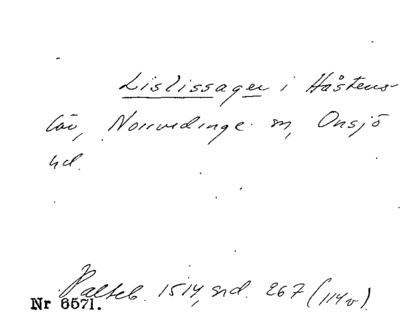 Lislissager i Håstens-
löv, Norrvidinge sn, Onsjö
hd.
Palteb. 1514, sid. 267 (114v).
Nr 6571.